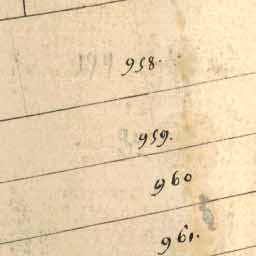 958.
959.
960
961.